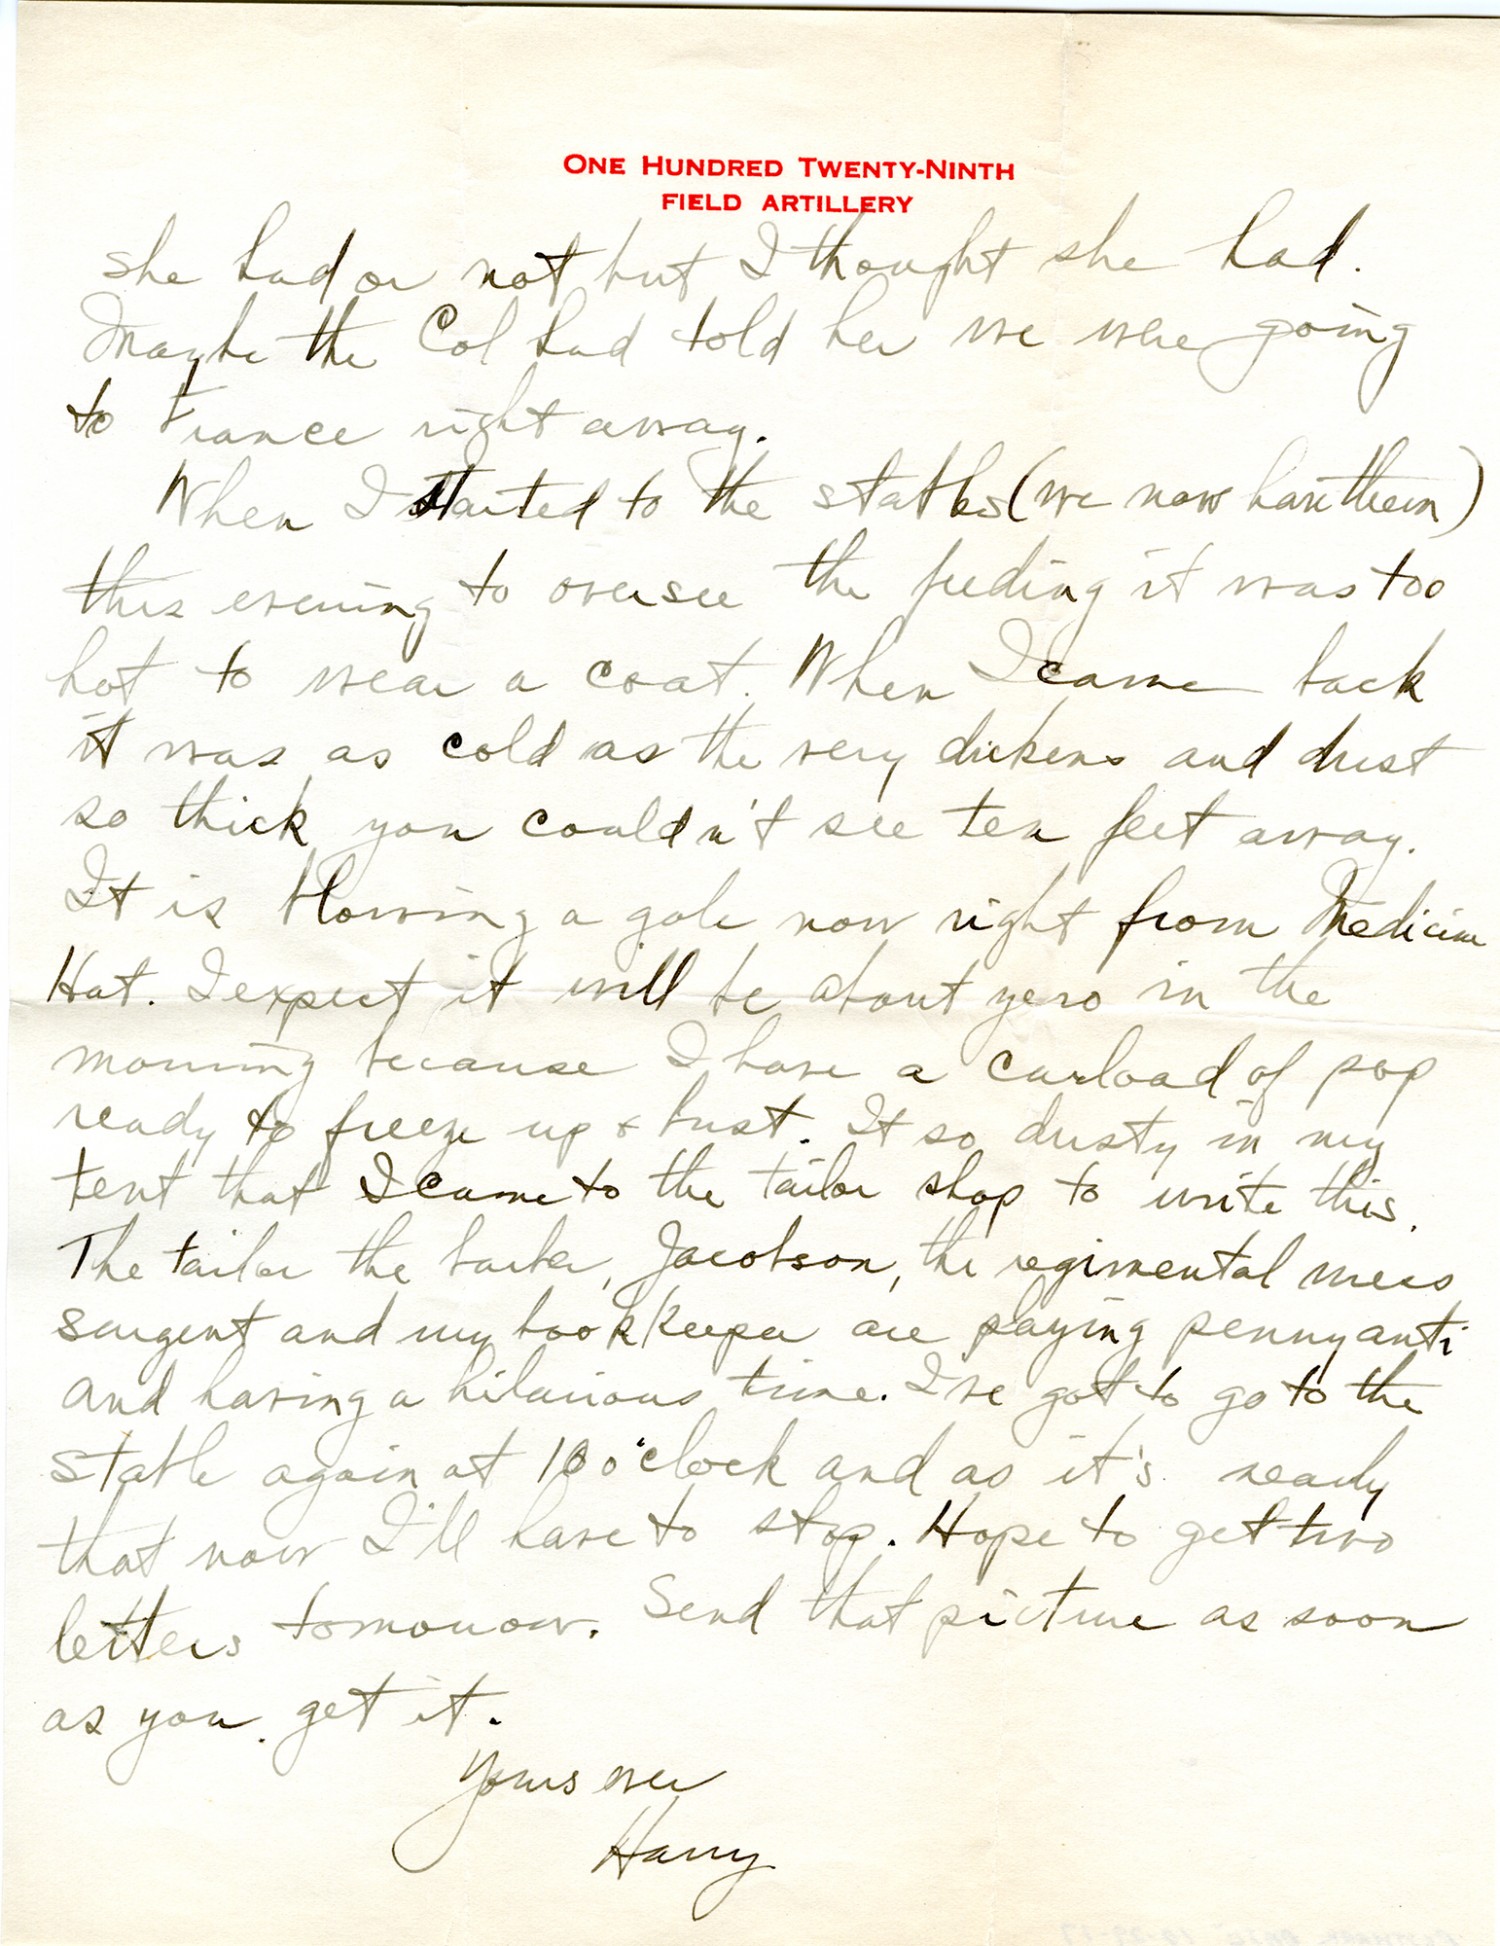 ONE HUNDRED TWENTY-NINTH
FIELD ARTILLERY
she had or not but I thought she had.
Maybe the Col had told her we were going
to France right away.
When I started to the stables (we now have them)
this evening to oversee the feeding it was too
hot to wear a coat. When I came back
it was as cold as the very dickens and dust
so thick you couldn't see ten feet away.
It is blowing a gale now right from Medicine
Hat. I expect it will be about zero in the
morning because I have a carload of pop
ready to freeze up & bust. It so dusty in my
tent that I came to the tailor shop to write this.
The tailor the barber, Jacobson, the regimental mess
sergent and my bookkeeper are playing penny anti
and having a hilarious time. I've got to go to the
stable again at 10 o'clock and as it's nearly
that now I'll have to stop. Hope to get two
letters tomorrow. Send that picture as soon
as you get it.
Yours ever
Harry